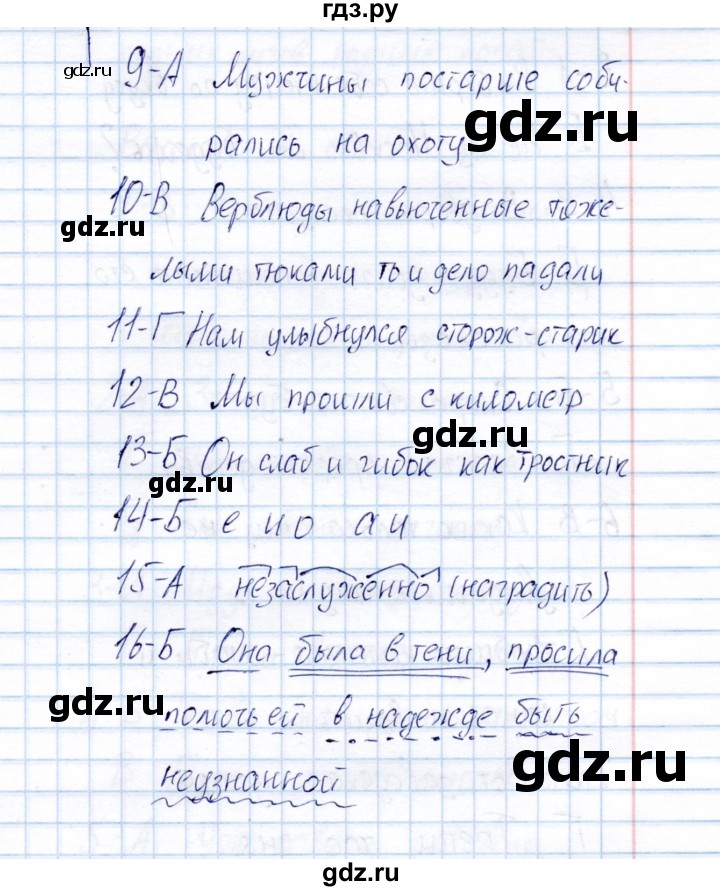 гдз.ру
gdz.ru
9-А Мужчины постарше соби-
рались на охоту
gdz.ru
10-В Верблюды навьюченные тяже-
gdz.ru
лыми тюками то и дело падали
gdz.ru
11-Г Нам улыбнулся сторож-старик
12-В Мы прошли с километр
gdz.ru
13-Б Он слаб и гибок как тростник
gdz.ru
14-Б е и о а и
gdz.ru
15-А незаслуженно (наградить)
gdz.ru
16-Б Она была в тени, просила
gdz.ru
помочь ей в надежде быть
gdz.ru
неузнанной
gdz.ru
gdz.ru